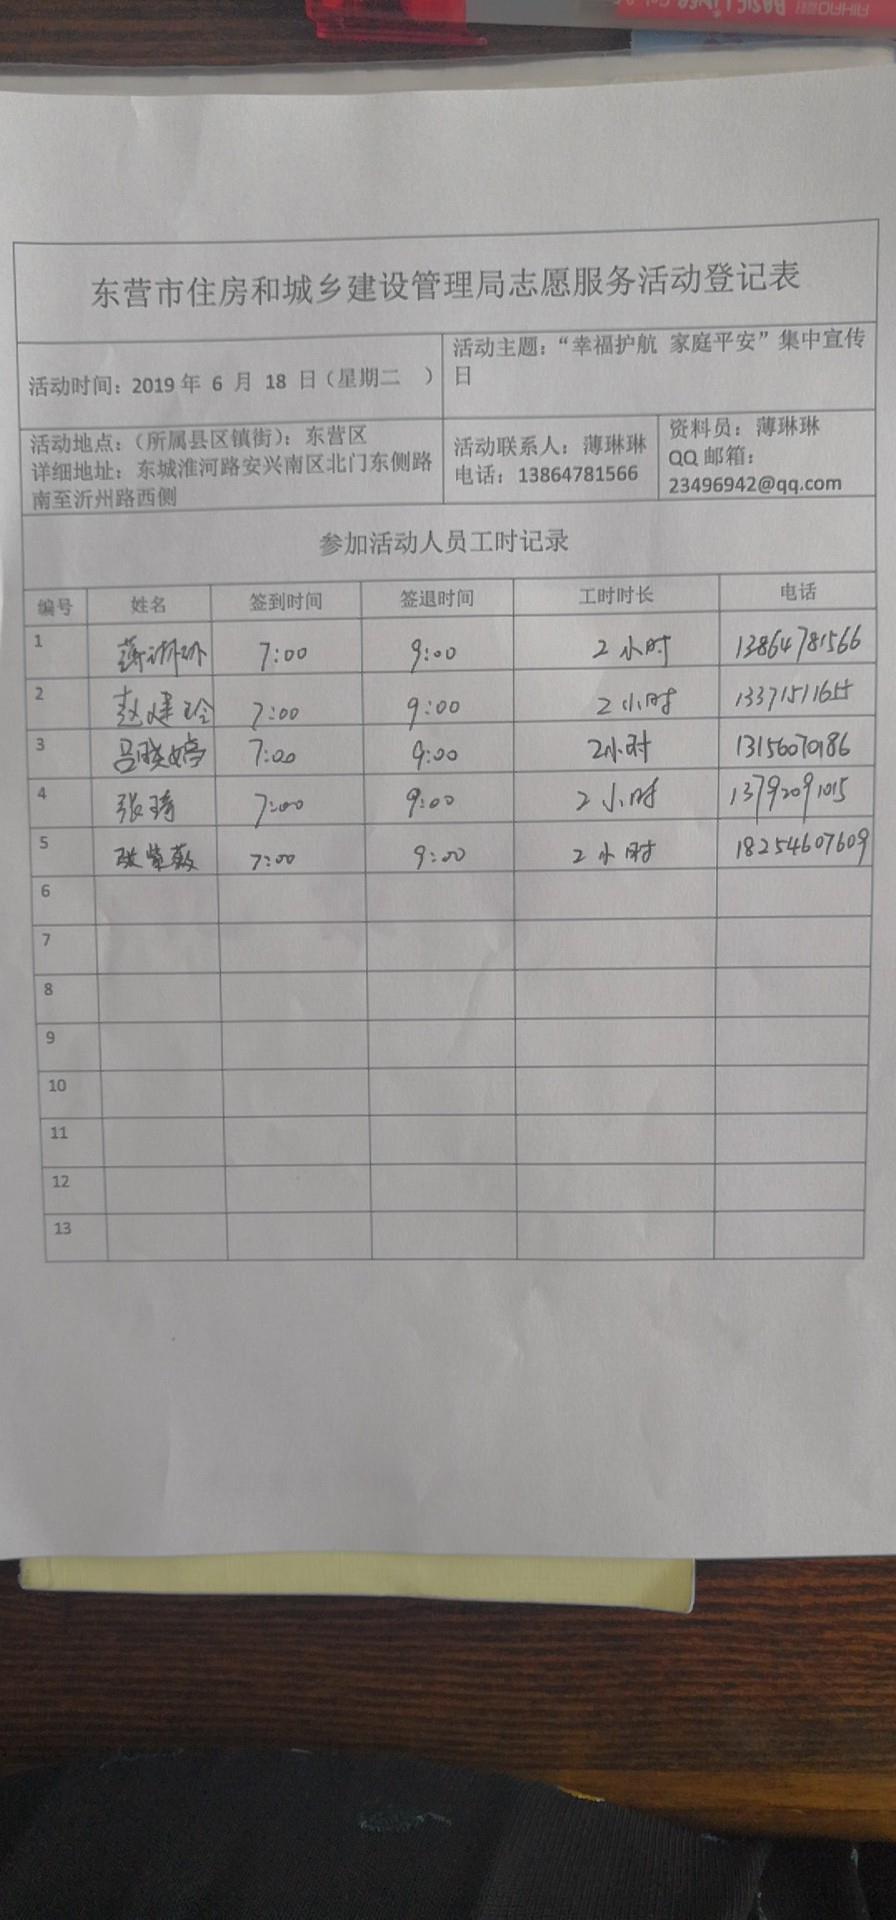 东营市住房和城乡建设管理局志愿服务活动登记表
活动时间：2019 年 6 月 18 日（星期二 ）
活动主题：“幸福护航 家庭平安”集中宣传
日
活动地点：（所属县区镇街）：东营区
详细地址：东城淮河路安兴南区北门东侧路
南至沂州路西侧
活动联系人：薄琳琳
电话：13864781566
资料员：薄琳琳
QQ 邮箱：
23496942@qq.com
参加活动人员工时记录
编号 姓名 签到时间 签退时间 工时时长 电话
1 薄琳琳 7:00 9:00 2 小时 13864781566
2 赵建玲 7:00 9:00 2 小时 13371511655
3 吕晓婷 7:00 9:00 2小时 13156070186
4 张琦 7:00 9:00 2 小时 13792091015
5 张紫薇 7:00 9:00 2 小时 18254607609
6
7
8
9
10
11
12
13